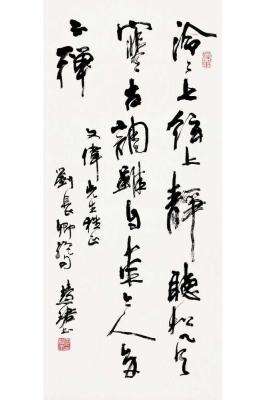 泠〻七弦上靜聽松風
寒古調雖自愛今人多
不彈
文偉先生雅正
劉長卿絕句